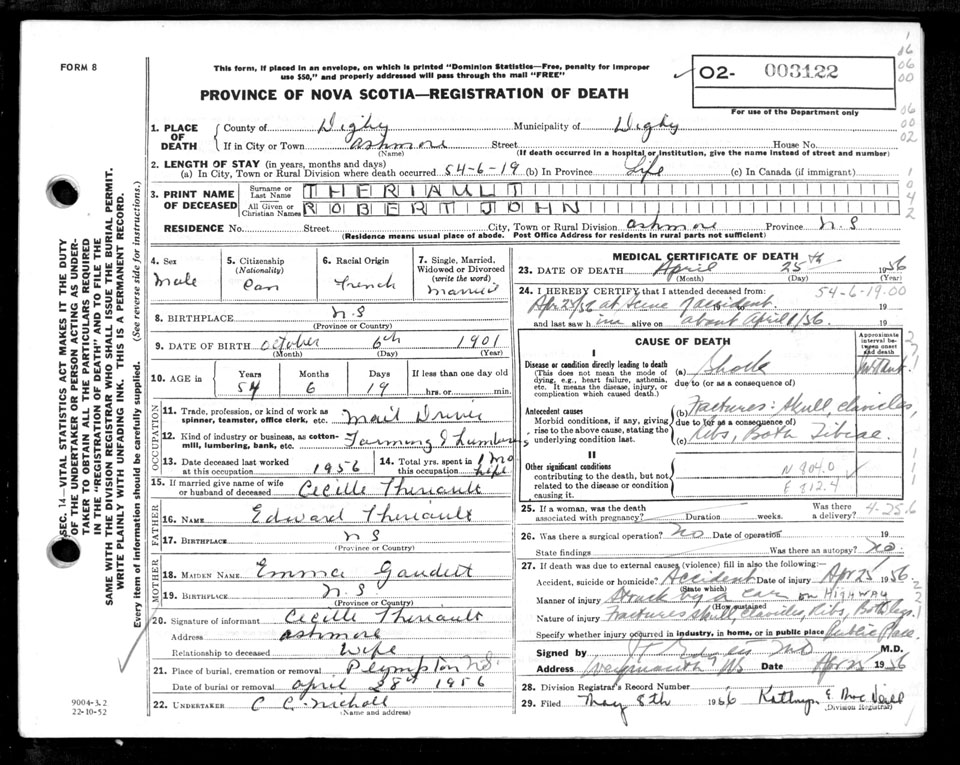 FORM 8
This form, if placed in an envelope, on which is printed "Dominion Statistics—Free, penalty for improper
use $50," and properly addressed will pass through the mail "FREE"
PROVINCE OF NOVA SCOTIA—REGISTRATION OF DEATH
02- 003122
For use of the Department only
1. PLACE OF DEATH County of Digby Municipality of Digby
If in City or Town Ashmore Street House No.
(Name) (If death occurred in a hospital or institution, give the name instead of street and number)
2. LENGTH OF STAY (in years, months and days)
(a) In City, Town or Rural Division where death occurred 54-6-19 (b) In Province Life (c) In Canada (if immigrant)
3. PRINT NAME OF DECEASED Surname or Last Name THERIAULT
All Given or Christian Names ROBERT JOHN
RESIDENCE No. Street City, Town or Rural Division Ashmore Province N.S
(Residence means usual place of abode. Post Office Address for residents in rural parts not sufficient)
4. Sex Male
5. Citizenship (Nationality) Can
6. Racial Origin French
7. Single, Married, Widowed or Divorced (write the word) Married
8. BIRTHPLACE N.S
(Province or Country)
9. DATE OF BIRTH October 6th 1901
(Month) (Day) (Year)
10. AGE in Years Months Days If less than one day old
54 6 19 hrs. or min.
OCCUPATION
11. Trade, profession, or kind of work as spinner, teamster, office clerk, etc. Mail Driver
12. Kind of industry or business, as cotton-mill, lumbering, bank, etc. Farming & Lumbering
13. Date deceased last worked at this occupation 1956
14. Total yrs. spent in this occupation 1 Mo Life
15. If married give name of wife or husband of deceased Cecille Theriault
FATHER
16. NAME Edward Theriault
17. BIRTHPLACE N S
(Province or Country)
MOTHER
18. MAIDEN NAME Emma Gaudet
19. BIRTHPLACE N.S
(Province or Country)
20. Signature of informant Cecille Theriault
Address Ashmore
Relationship to deceased Wife
21. Place of burial, cremation or removal Plympton N.S.
Date of burial or removal April 28th 1956
22. UNDERTAKER C C Nicholl
(Name and address)
MEDICAL CERTIFICATE OF DEATH
23. DATE OF DEATH April 25th 1956
(Month) (Day)
24. I HEREBY CERTIFY that I attended deceased from: 54-6-19.00
Apr 25/56 at scene of accident 19
and last saw him alive on about April 1/56. 19
CAUSE OF DEATH
Approximate interval between onset and death
I
Disease or condition directly leading to death (a) Shock Instant.
(This does not mean the mode of dying, e.g., heart failure, asthenia, etc. It means the disease, injury, or complication which caused death.)
due to (or as a consequence of)
Antecedent causes (b) Fractures: Skull, clavicles,
Morbid conditions, if any, giving rise to the above cause, stating the underlying condition last.
due to (or as a consequence of)
(c) Ribs, Both Tibiae.
II
Other significant conditions
contributing to the death, but not related to the disease or condition causing it.
N 804.0
E 812.4
25. If a woman, was the death associated with pregnancy? Duration weeks. Was there a delivery? 4-25.6
26. Was there a surgical operation? No Date of operation 19
State findings Was there an autopsy? No.
27. If death was due to external causes (violence) fill in also the following:
Accident, suicide or homicide? Accident Date of injury Apr 25 1956
(State which)
Manner of injury Struck by a car on Highway
(How sustained)
Nature of injury Fractures Skull, Clavicles, Ribs, Both legs.
Specify whether injury occurred in industry, in home, or in public place Public Place.
Signed by M.D.
Address Weymouth NS Date Apr 25 1956
28. Division Registrar's Record Number
29. Filed May 8th 1956 Kathryn E. MacNeill
(Division Registrar)
SEC. 14—VITAL STATISTICS ACT MAKES IT THE DUTY
OF THE UNDERTAKER OR PERSON ACTING AS UNDER-
TAKER TO OBTAIN ALL THE PARTICULARS REQUIRED
IN THE "REGISTRATION OF DEATH" AND TO FILE THE
SAME WITH THE DIVISION REGISTRAR WHO SHALL ISSUE THE BURIAL PERMIT.
WRITE PLAINLY WITH UNFADING INK. THIS IS A PERMANENT RECORD.
Every item of information should be carefully supplied. (See reverse side for instructions.)
9004-3.2
22-10-52